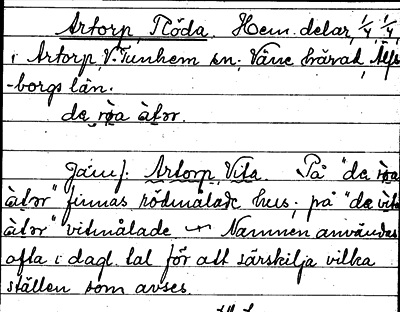 Artorp, Röda. Hem.delar, 1/4, 1/4,
i Artorp, V. Tunhem sn, Väne härad, Älfs-
-borgs län.
de röa àtɔr.
Jämf. Artorp, Vita. På "de röa
àtɔr" finnas rödmålade hus; på "de vita
àtɔr" vitmålade. Namnen användas
ofta i dagl. tal för att särskilja vilka
ställen som avses.